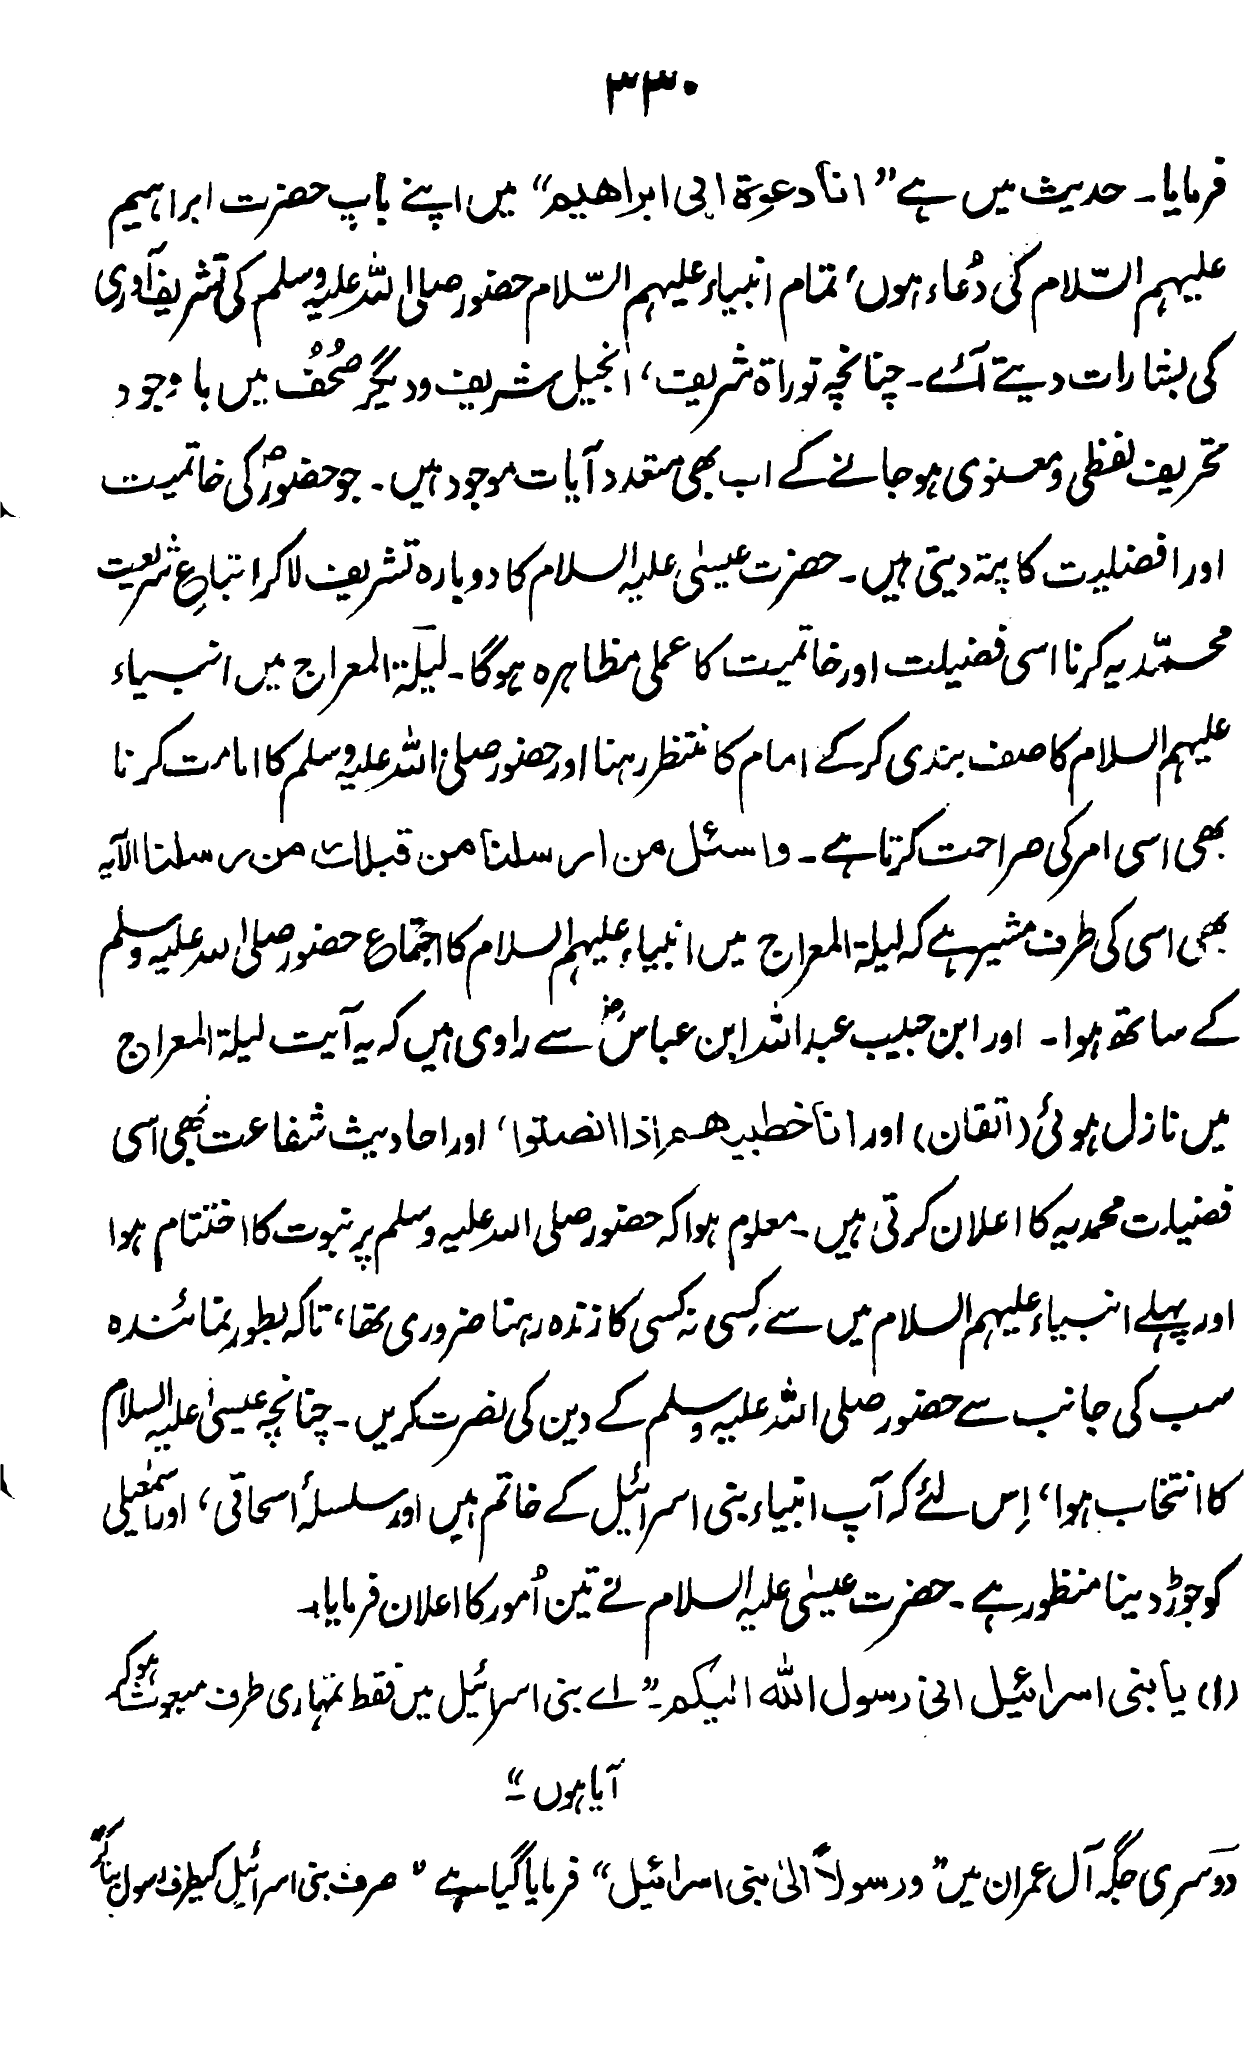 ۳۳۰
فرمایا۔ حدیث میں ہے ”انا دعوۃ ابی ابراھیم“ میں اپنے باپ حضرت ابراہیم
علیہم السّلام کی دُعاء ہوں، تمام انبیاء علیہم السّلام حضور صلی اللہ علیہ وسلم کی تشریف آوری
کی بشارات دیتے آئے۔ چنانچہ توراۃ شریف، انجیل شریف و دیگر صُحُف میں باوجود
تحریف لفظی و معنوی ہو جانے کے اب بھی متعدد آیات موجود ہیں۔ جو حضورؐ کی خاتمیت
اور افضلیت کا پتہ دیتی ہیں۔ حضرت عیسیٰ علیہ السلام کا دوبارہ تشریف لا کر اتباعِ شریعت
محمّدیہ کرنا اسی فضیلت اور خاتمیت کا عملی مظاہرہ ہوگا۔ لیلۃ المعراج میں انبیاء
علیہم السلام کا صف بندی کر کے امام کا منتظر رہنا اور حضور صلی اللہ علیہ وسلم کا امامت کرنا
بھی اسی امر کی صراحت کرتا ہے۔ واسئل من ارسلنا من قبلک من رسلنا الآیہ
بھی اسی کی طرف مشیر ہے کہ لیلۃ المعراج میں انبیاء علیہم السلام کا اجتماع حضور صلی اللہ علیہ وسلم
کے ساتھ ہوا۔ اور ابن حبیب عبداللہ ابن عباسؓ سے راوی ہیں کہ یہ آیت لیلۃ المعراج
میں نازل ہوئی (اتقان) اور انا خطیبھم اذا انصتوا، اور احادیث شفاعت بھی اسی
فضیلت محمدیہ کا اعلان کرتی ہیں۔ معلوم ہوا کہ حضور صلی اللہ علیہ وسلم پر نبوت کا اختتام ہوا
اور پہلے انبیاء علیہم السلام میں سے کِسی نہ کسی کا زندہ رہنا ضروری تھا، تاکہ بطور نمائندہ
سب کی جانب سے حضور صلی اللہ علیہ وسلم کے دین کی نصرت کریں۔ چنانچہ عیسیٰ علیہ السلام
کا انتخاب ہوا، اِس لئے کہ آپ انبیاء بنی اسرائیل کے خاتم ہیں اور سلسلۂ اسحاقی، اور اسمٰعیلی
کو جوڑ دینا منظور ہے۔ حضرت عیسیٰ علیہ السلام نے تین اُمور کا اعلان فرمایا۔
(۱) یا بنی اسرائیل انی رسول اللہ الیکم۔ ”اے بنی اسرائیل میں فقط تمہاری طرف مبعوث ہو کر
آیا ہوں۔“
دوسری جگہ آل عمران میں ”ورسولاً الیٰ بنی اسرائیل“ فرمایا گیا ہے ”صرف بنی اسرائیل کیطرف رسول بنا کر